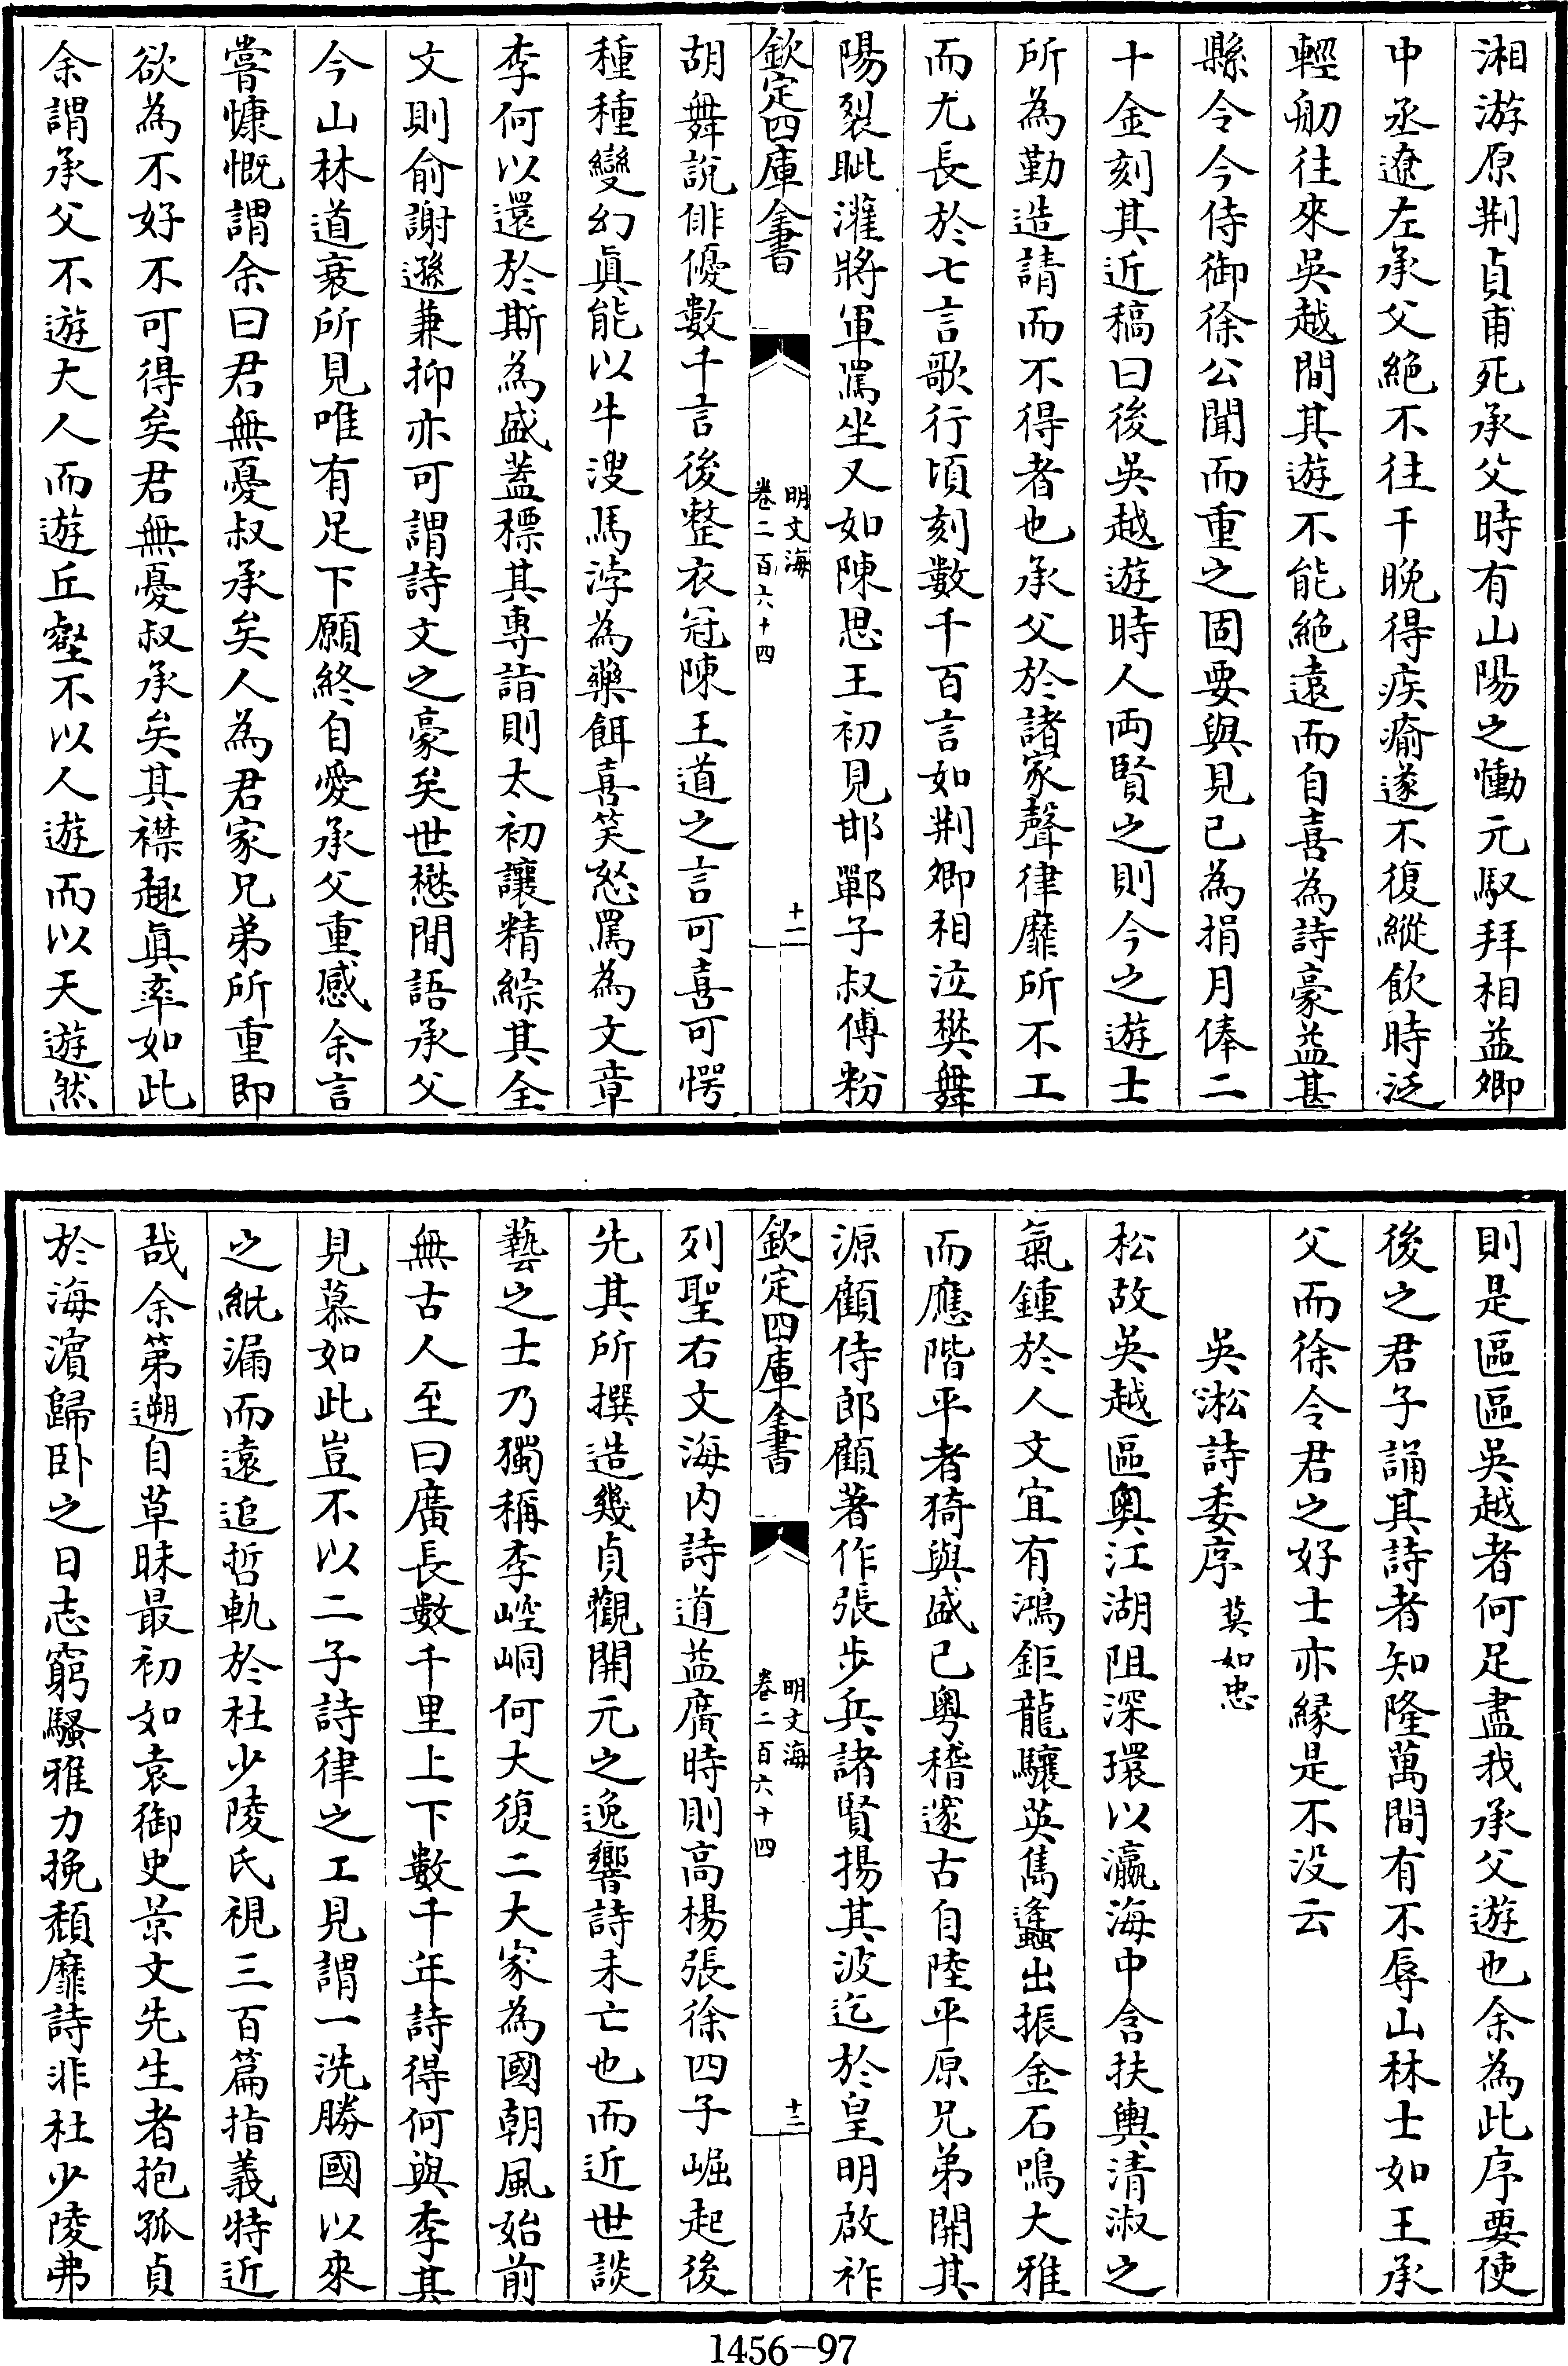 湘游原荆貞甫死承父時有山陽之慟元馭拜相益卿
中丞遼左承父絶不往干晩得疾瘉遂不復縱飲時泛
輕舠往來吳越間其遊不能絶遠而自喜為詩豪益甚
縣令今侍御徐公聞而重之固要與見已為捐月俸二
十金刻其近稿曰後吳越遊時人両賢之則今之遊士
所為勤造請而不得者也承父於諸家聲律靡所不工
而尤長於七言歌行頃刻數千百言如荆卿相泣樊舞
陽裂眦灌將軍罵坐又如陳思王初見邯鄲子叔傅粉
欽定四庫全書
明文海
卷二百六十四
十二
胡舞說俳優數千言後整衣冠陳王道之言可喜可愕
種種變幻眞能以牛溲馬浡為藥餌喜笑怒罵為文章
李何以還於斯為盛蓋標其專詣則太初讓精綜其全
文則俞謝遜兼抑亦可謂詩文之豪矣世懋間語承父
今山林道衰所見唯有足下願終自愛承父重感余言
嘗慷慨謂余曰君無憂叔承矣人為君家兄弟所重即
欲為不好不可得矣君無憂叔承矣其襟趣眞率如此
余謂承父不遊大人而遊丘壑不以人遊而以天遊然
則是區區吳越者何足盡我承父遊也余為此序要使
後之君子誦其詩者知隆萬間有不辱山林士如王承
父而徐令君之好士亦縁是不没云
吳淞詩委序 莫如忠
松故吳越區奥江湖阻深環以瀛海中含扶輿清淑之
氣鍾於人文宜有鴻鉅龍驤英雋蠭出振金石鳴大雅
而應階平者猗與盛已粤稽邃古自陸平原兄弟開其
源顧侍郎顧著作張步兵諸賢揚其波迄於皇明啟祚
欽定四庫全書
明文海
卷二百六十四
十三
列聖右文海内詩道益廣時則高楊張徐四子崛起後
先其所撰造幾貞觀開元之逸響詩未亡也而近世談
藝之士乃獨稱李崆峒何大復二大家為國朝風始前
無古人至曰廣長數千里上下數千年詩得何與李其
見慕如此豈不以二子詩律之工見謂一洗勝國以來
之紕漏而遠追哲軌於杜少陵氏視三百篇指義特近
哉余第遡自草昧最初如袁御史景文先生者抱孤貞
於海濵歸卧之日志窮騷雅力挽頽靡詩非杜少陵弗
1456-97